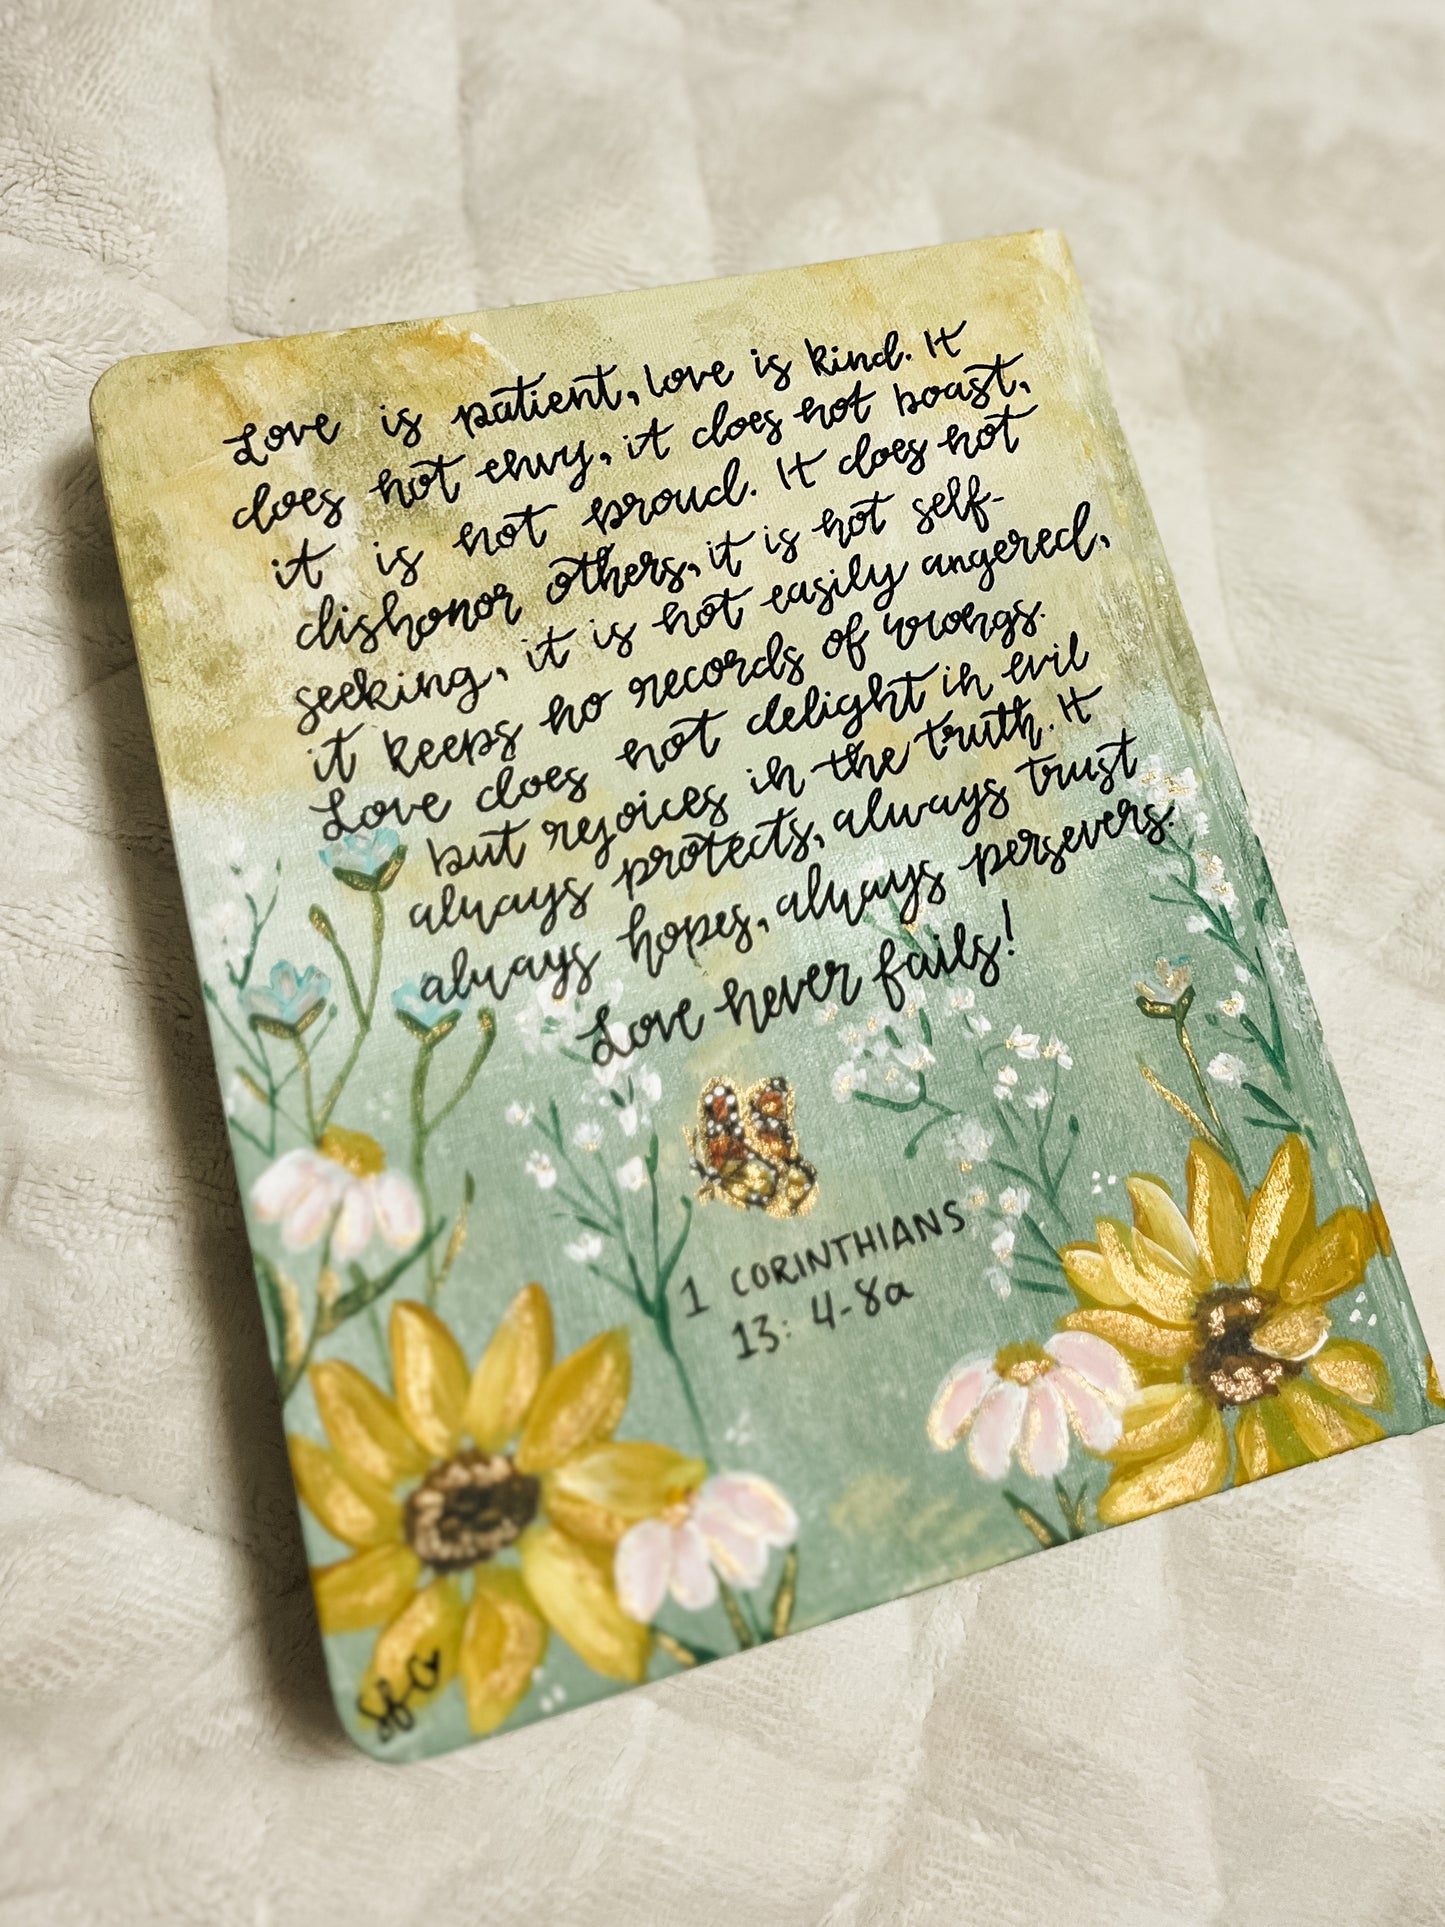 Love is patient, love is kind. It
does not envy, it does not boast,
it is not proud. It does not
dishonor others, it is not self-
seeking, it is not easily angered,
it keeps no records of wrongs.
Love does not delight in evil
but rejoices in the truth. It
always protects, always trust
always hopes, always persevers.
Love never fails!
1 CORINTHIANS
13: 4-8a